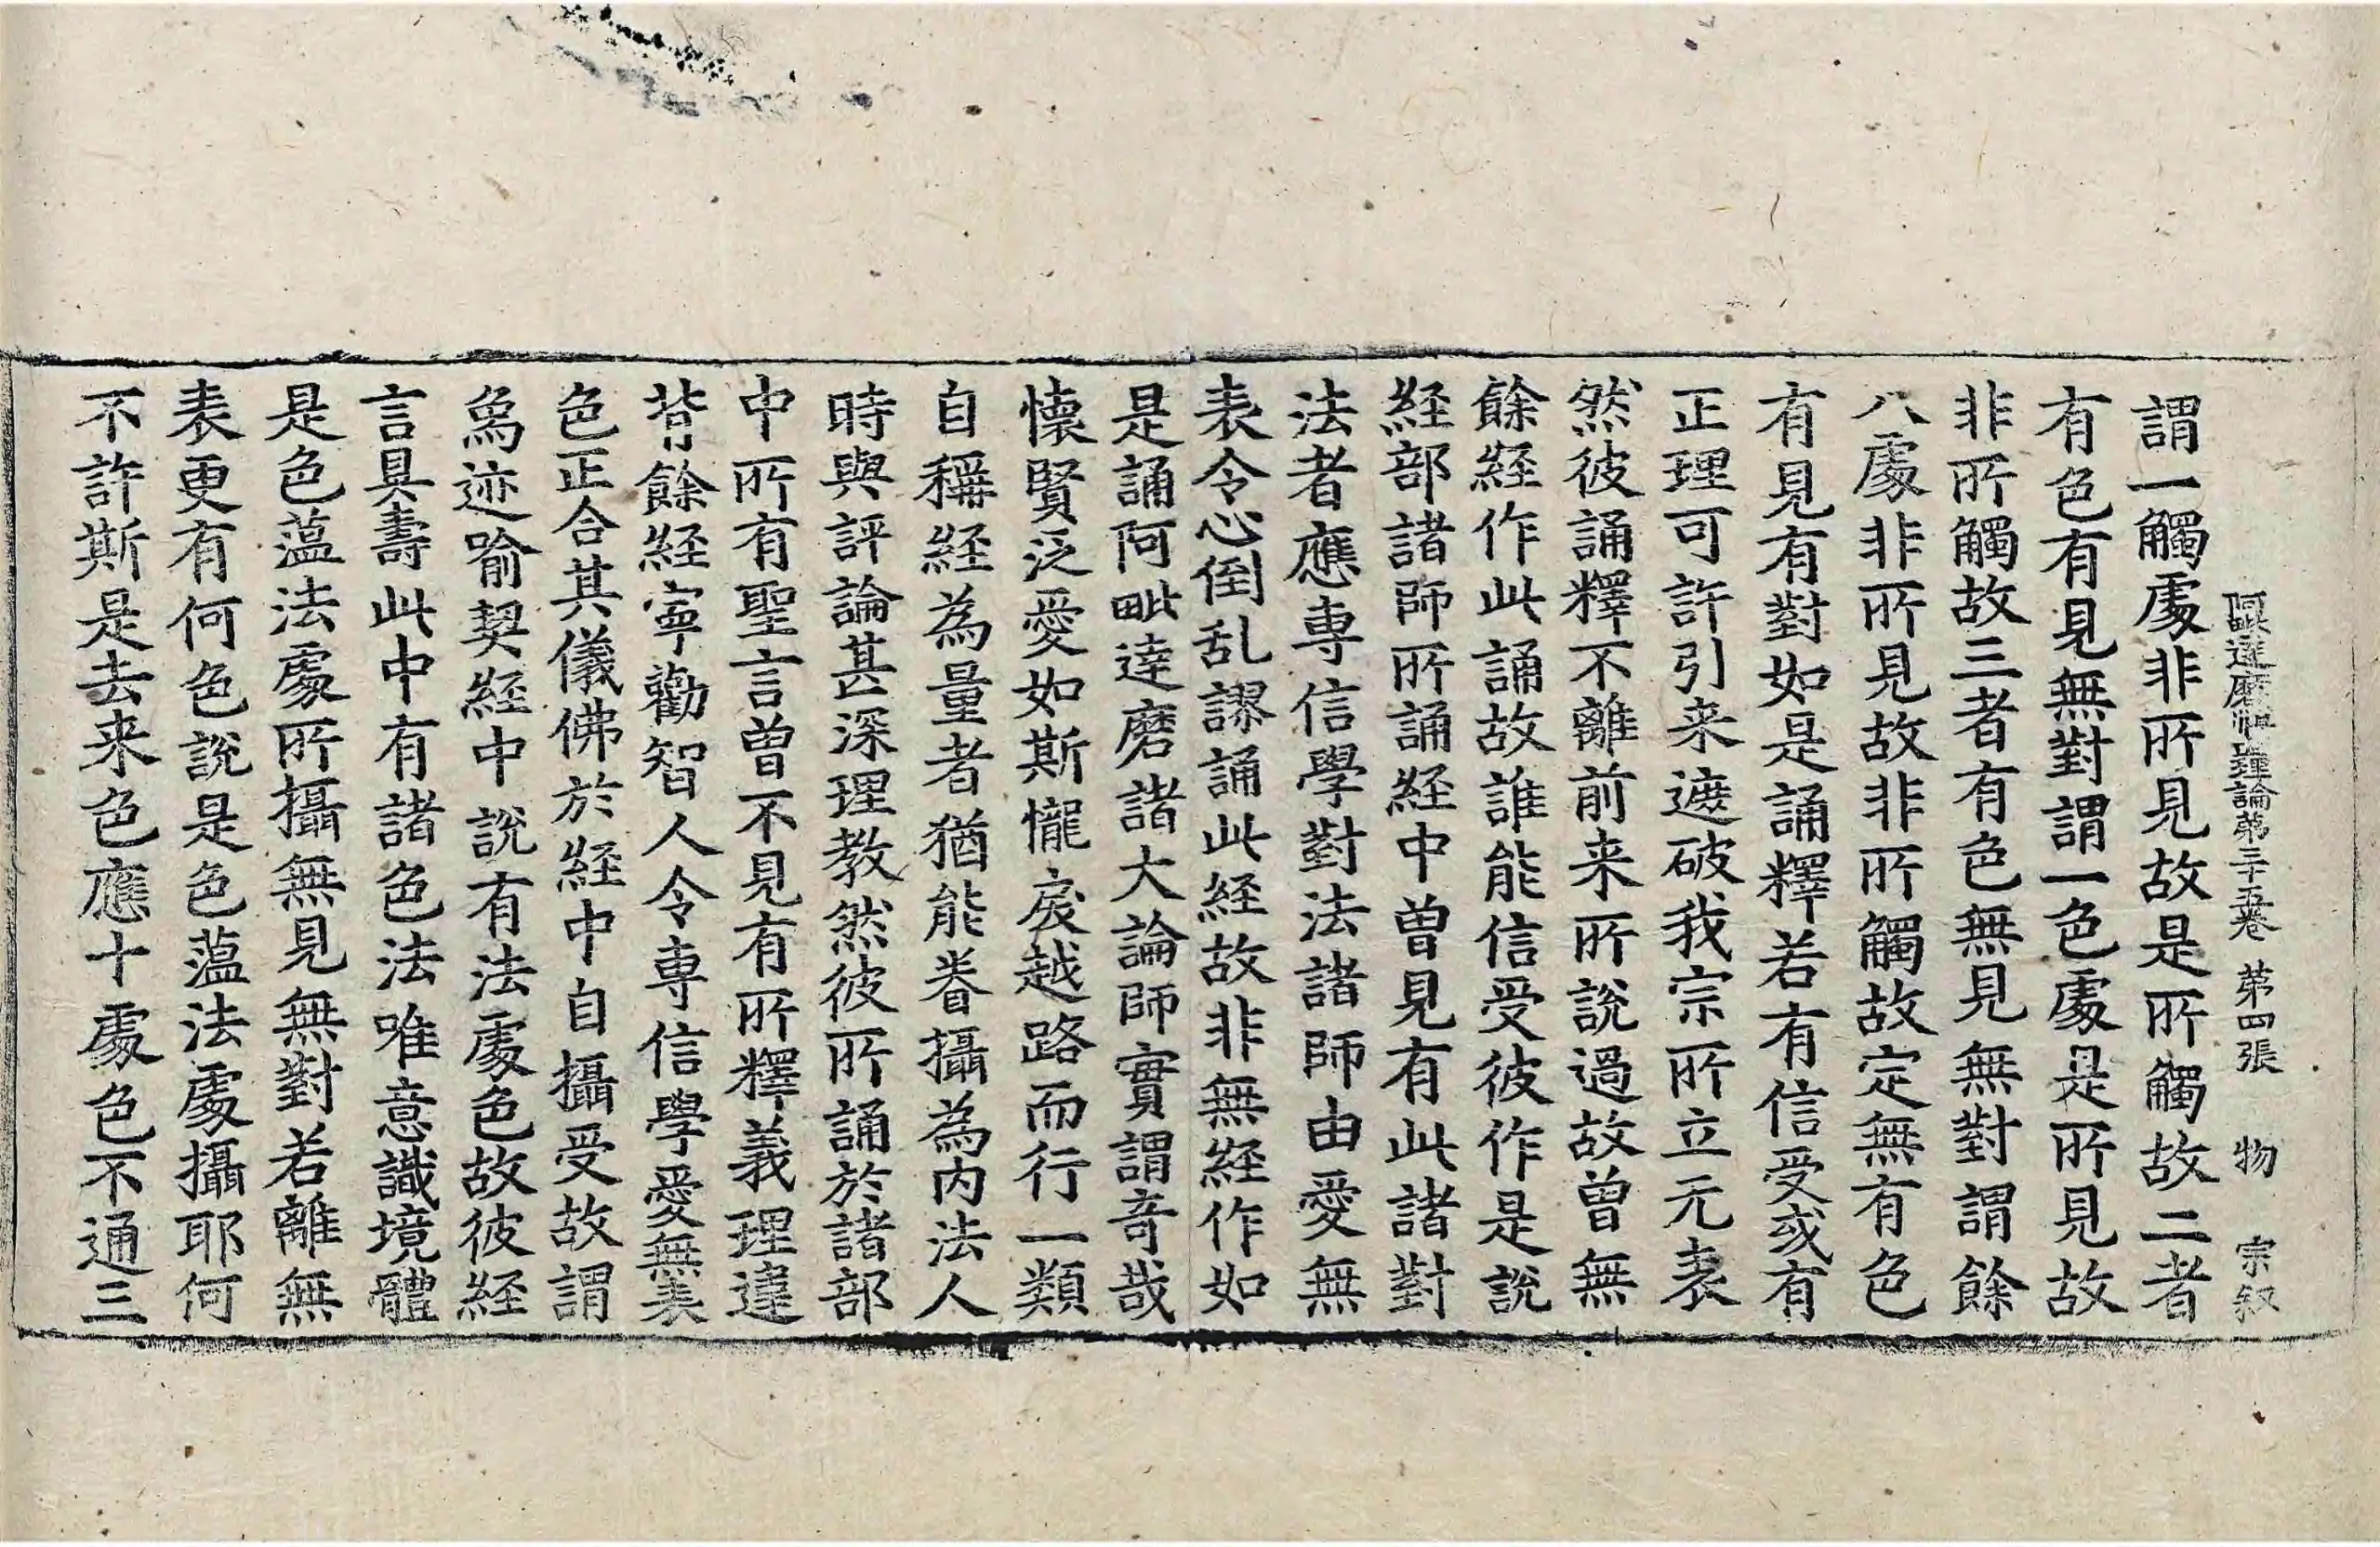 阿毗達磨順正理論第三十五卷 第四張 物 宗叙
謂一觸處非所見故是所觸故二者
有色有見無對謂一色處是所見故
非所觸故三者有色無見無對謂餘
八處非所見故非所觸故定無有色
有見有對如是誦釋若有信受或有
正理可許引来遮破我宗所立无表
然彼誦釋不離前来所說過故曾無
餘経作此誦故誰能信受彼作是說
経部諸師所誦経中曾見有此諸對
法者應專信學對法諸師由愛無
表令心倒乱謬誦此経故非無経作如
是誦阿毗達磨諸大論師實謂奇哉
懐賢泛愛如斯𢤱戾越路而行一類
自稱経為量者猶能眷攝為內法人
時與評論甚深理教然彼所誦於諸部
中所有聖言曾不見有所釋義理違
背餘経寧勸智人令專信學愛無表
色正合其儀佛於経中自攝受故謂
𤉡迹喻契経中說有法處色故彼経
言具壽此中有諸色法唯意識境體
是色薀法處所攝無見無對若離無
表更有何色說是色薀法處攝耶何
不許斯是去来色應十處色不通三